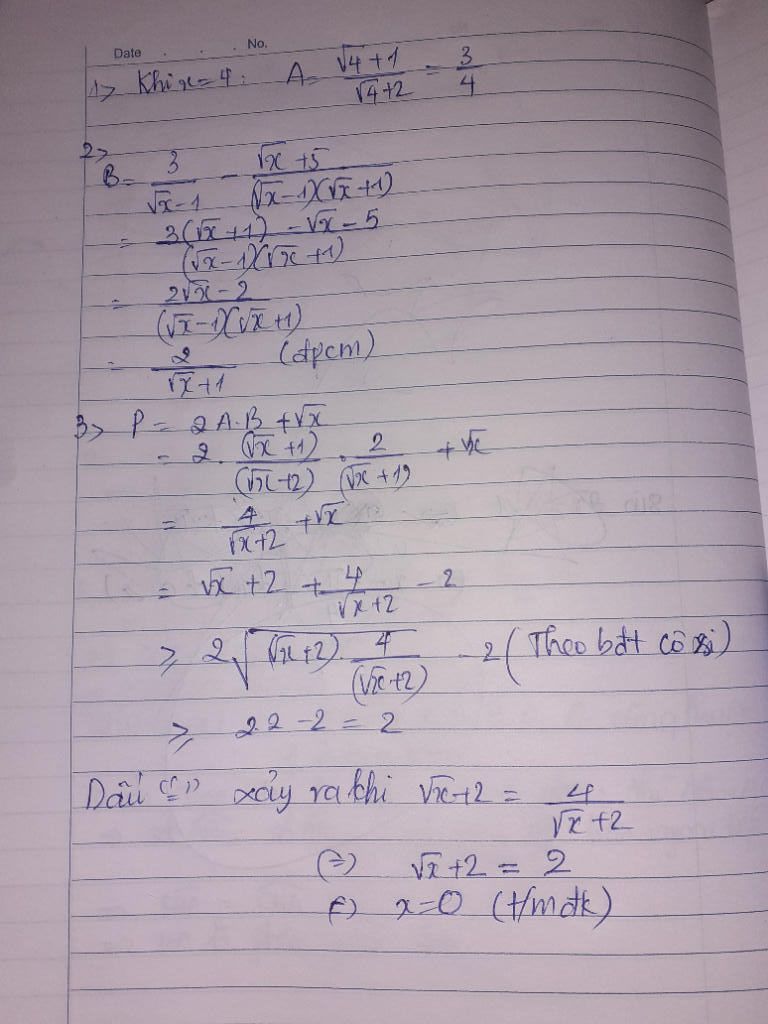 Date . . . . No.
1> Khi x=4: A = (√4+1)/(√4+2) = 3/4
2>
B = 3/(√x-1) - (√x+5)/((√x-1)(√x+1))
= (3(√x+1) -√x-5)/((√x-1)(√x+1))
= (2√x-2)/((√x-1)(√x+1))
= 2/(√x+1) (đpcm)
3> P = 2A.B +√x
= 2.(√x+1)/(√x+2) . 2/(√x+1) +√x
= 4/(√x+2) +√x
= √x+2 + 4/(√x+2) -2
≥ 2√((√x+2).4/(√x+2)) -2 (Theo bđt cô si)
≥ 2.2-2 = 2
Dấu "=" xảy ra khi √x+2 = 4/(√x+2)
(=) √x+2 = 2
(=) x=0 (t/m đk)